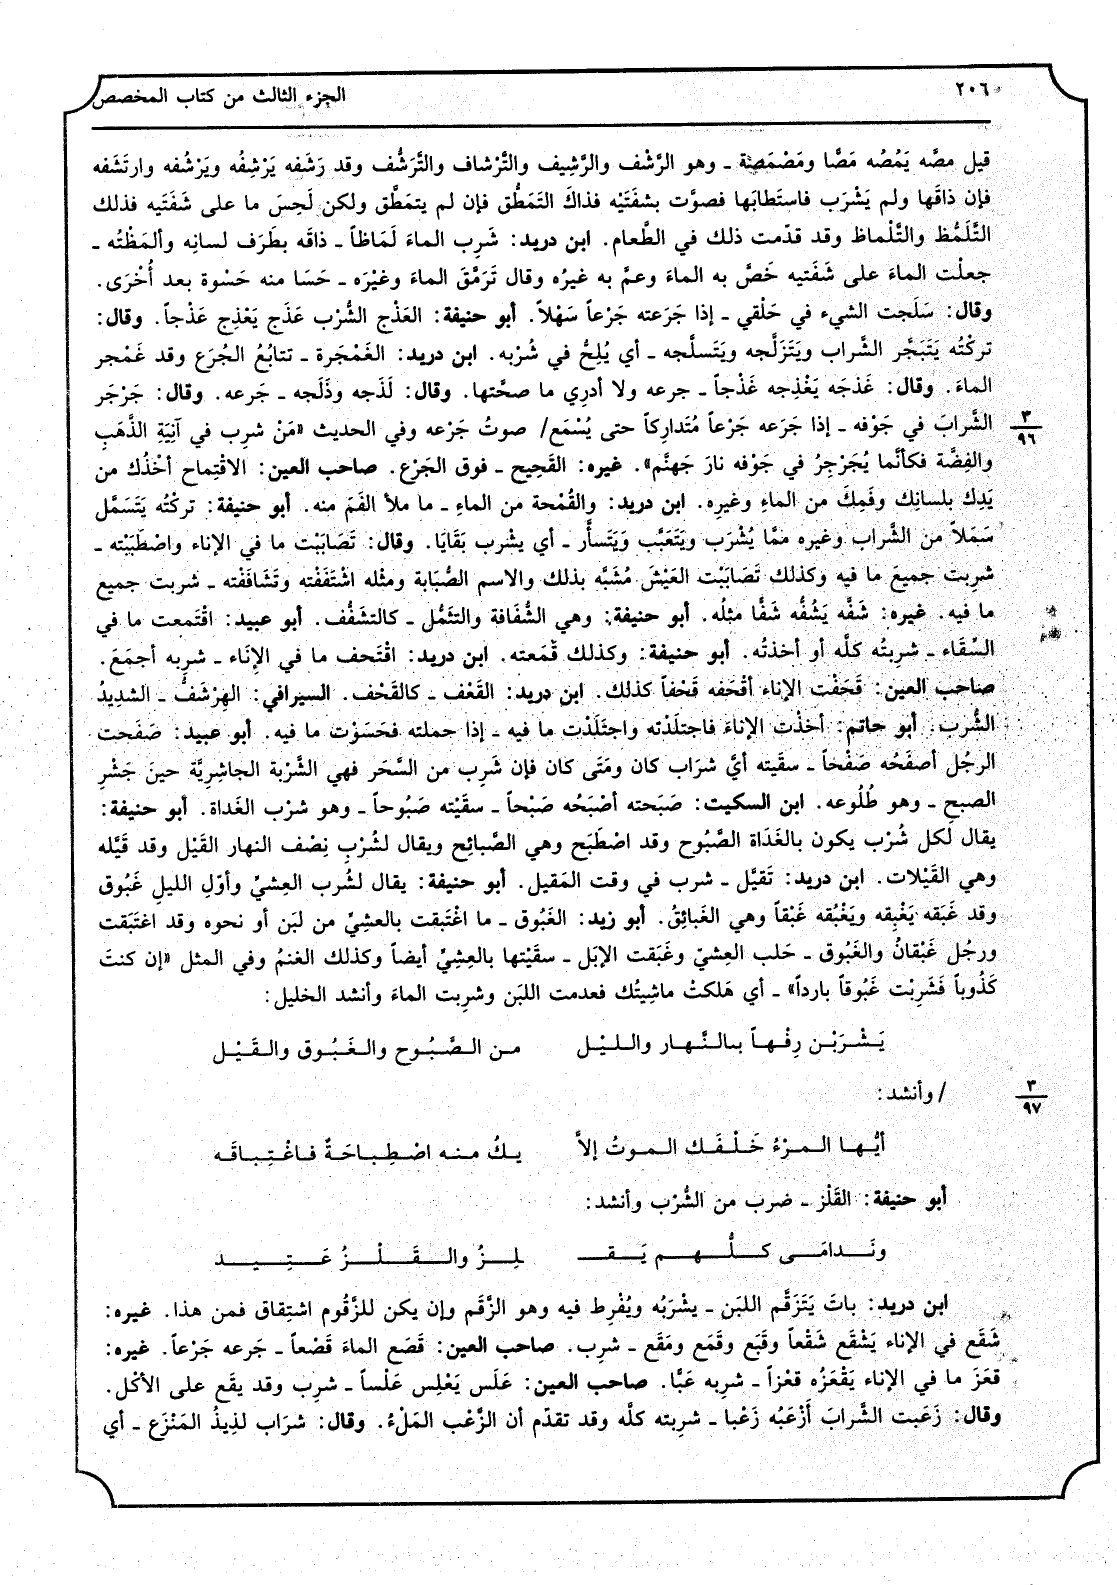 ٢٠٦ الجزء الثالث من كتاب المخصص
قيل مصَّه يَمُصُه مَصًّا ومَصْمَصة ـ وهو الرَّشْف والرَّشِيف والتَّرْشاف والتَّرَشُّف وقد رَشَفه يَرْشِفُه ويَرْشُفه وارتَشَفه
فإن ذاقَها ولم يَشْرَب فاستَطابَها فصوَّت بشفتَيْه فذاكَ التَمَطُّق فإن لم يتمَطَّق ولكن لَحِسَ ما على شَفَتَيه فذلك
التَّلَمُّظ والتَّلْماظ وقد قدّمت ذلك في الطَّعام. ابن دريد: شَرِب الماءَ لَمَاظاً ـ ذاقَه بطَرَف لسانِه وألمَظْتُه ـ
جعلْت الماءَ على شَفَتيه خَصَّ به الماءَ وعمَّ به غيرُه وقال تَرَمَّقَ الماءَ وغيْرَه ـ حَسَا منه حَسْوة بعد أُخْرَى.
وقال: سَلَجت الشيء في حَلْقي ـ إذا جَرَعته جَرْعاً سَهْلاً. أبو حنيفة: العَذْج الشُّرْب عَذَج يَعْذِج عَذْجاً. وقال:
تركْتُه يَتَبَجَّر الشَّراب ويَتَزَلَّجه ويَتَسلَّجه ـ أي يُلِحُّ في شُرْبه. ابن دريد: الغَمْجَرة ـ تتابُعُ الجُرَع وقد غَمْجر
الماءَ. وقال: غَذجَه يَغْذِجه غَذْجاً ـ جرعه ولا أدرِي ما صحَّتها. وقال: لَذَجه وذَلَجه ـ جَرعه. وقال: جَرْجَر
الشَّرابَ في جَوْفه ـ إذا جَرَعه جَرْعاً مُتَدارِكاً حتى يُسْمَع/ صوتُ جَرْعه وفي الحديث «مَنْ شرِب في آنِيَةِ الذَّهَبِ
٣
٩٦
والفِضَّة فكأنَّما يُجَرْجِرُ في جَوْفه نارَ جَهنَّم». غيره: القَحِيح ـ فوق الجَرْع. صاحب العين: الاقْتِماح أخْذُك من
يَدِك بلسانِك وفَمِكَ من الماءِ وغيرِه. ابن دريد: والقُمْحة من الماءِ ـ ما ملأ الفَمَ منه. أبو حنيفة: تركْتُه يَتَسَمَّل
سَمَلاً من الشَّراب وغيره ممَّا يُشْرَب ويَتَعبَّب وَيَتَسأَّر ـ أي يشْرب بَقَايَا. وقال: تَصَابَبْت ما في الإناء واصْطَبَبْته ـ
شرِبت جميعَ ما فيه وكذلك تَصَابَبْت العَيْشَ مُشَبَّه بذلك والاسم الصُّبَابة ومثْله اشْتَفَفْته وتَشَافَفْته ـ شربت جميع
ما فيه. غيره: شَفَّه يَشُفُّه شَفًّا مثلُه. أبو حنيفة: وهي الشُّفَافة والتثَمُّل ـ كالتشَفُّف. أبو عبيد: اقْتَمعت ما في
السِّقَاء ـ شرِبتُه كلَّه أو أخذتُه. أبو حنيفة: وكذلك قَمَعته. ابن دريد: اقْتَحف ما في الإِنَاء ـ شرِبه أجمَعَ.
صاحب العين: قَحَفْت الإناء أقْحَفه قَحْفاً كذلك. ابن دريد: القَعْف ـ كالقَحْف. السيرافي: الهِرْشَفُّ ـ الشديدُ
الشُّرب. أبو حاتم: أخذْت الإناءَ فاجتلَدْته واجتَلَدْت ما فيه ـ إذا حملته فحَسَوْت ما فيه. أبو عبيد: صَفَحت
الرجُل أصفَحُه صَفْحاً ـ سقَيته أيَّ شَراب كان ومَتَى كان فإن شَرِب من السَّحَر فهي الشَّرْبة الجاشِرِيَّة حينَ جَشْرِ
الصبحِ ـ وهو طُلُوعه. ابن السكيت: صَبَحته أصْبَحُه صَبْحاً ـ سقَيْته صَبُوحاً ـ وهو شرْب الغَداة. أبو حنيفة:
يقال لكل شُرْب يكون بالغَدَاة الصَّبُوح وقد اصْطَبَح وهي الصَّبائح ويقال لشُرْبِ نِصْف النهار القَيْل وقد قَيَّله
وهي القَيْلات. ابن دريد: تَقيَّل ـ شرب في وقت المَقيل. أبو حنيفة: يقال لشُرب العِشيِّ وأوّلِ الليلِ غَبُوق
وقد غَبَقه يَغْبِقه ويَغْبُقه غَبْقاً وهي الغَبائِقُ. أبو زيد: الغَبُوق ـ ما اغْتَبقت بالعشيِّ من لبَن أو نحوه وقد اغتَبَقت
ورجُل غَبْقانُ والغَبُوق ـ حَلب العِشيِّ وغَبَقت الإبَل ـ سقَيْتها بالعِشِيِّ أيضاً وكذلك الغنمُ وفي المثل «إن كنتَ
كَذُوباً فَشَرِبْت غَبُوقاً بارداً» ـ أي هَلكتْ ماشِيتُك فعدمت اللبَن وشربت الماءَ وأنشد الخليل:
يَشْرَبْن رِفْهاً بالنَّهار والليْل من الصَّبُوح والغَبُوق والقَيْل
/ وأنشد:
٣
٩٧
أيُّها المرْءُ خَلْفَك الموتُ إلاَّ يكُ منه اصْطِباحَةٌ فاغْتِباقَه
أبو حنيفة: القَلْز ـ ضرب من الشُّرْب وأنشد:
ونَدامَى كلُّهم يَقـ ـلِزُ والقَلْزُ عَتِيد
ابن دريد: باتَ يَتَزَقَّم اللبَن ـ يشْرَبُه ويُفْرِط فيه وهو الزَّقَم وإن يكن للزَّقُوم اشتِقاق فمن هذا. غيره:
شَقَع في الإناء يَشْقَع شَقْعاً وقَبَع وقَمَع ومَقَع ـ شرِب. صاحب العين: قَصَع الماءَ قَصْعاً ـ جَرعه جَرْعاً. غيره:
قعَزَ ما في الإناء يَقْعَزُه قعْزاً ـ شرِبه عَبًّا. صاحب العين: عَلَس يَعْلِس عَلْساً ـ شرِب وقد يقَع على الأكْل.
وقال: زَعَبت الشَّرابَ أَزْعَبُه زَعْبا ـ شرِبته كلَّه وقد تقدّم أن الزَّعْب المَلْءُ. وقال: شرَاب لذِيذُ المَنْزَع ـ أي